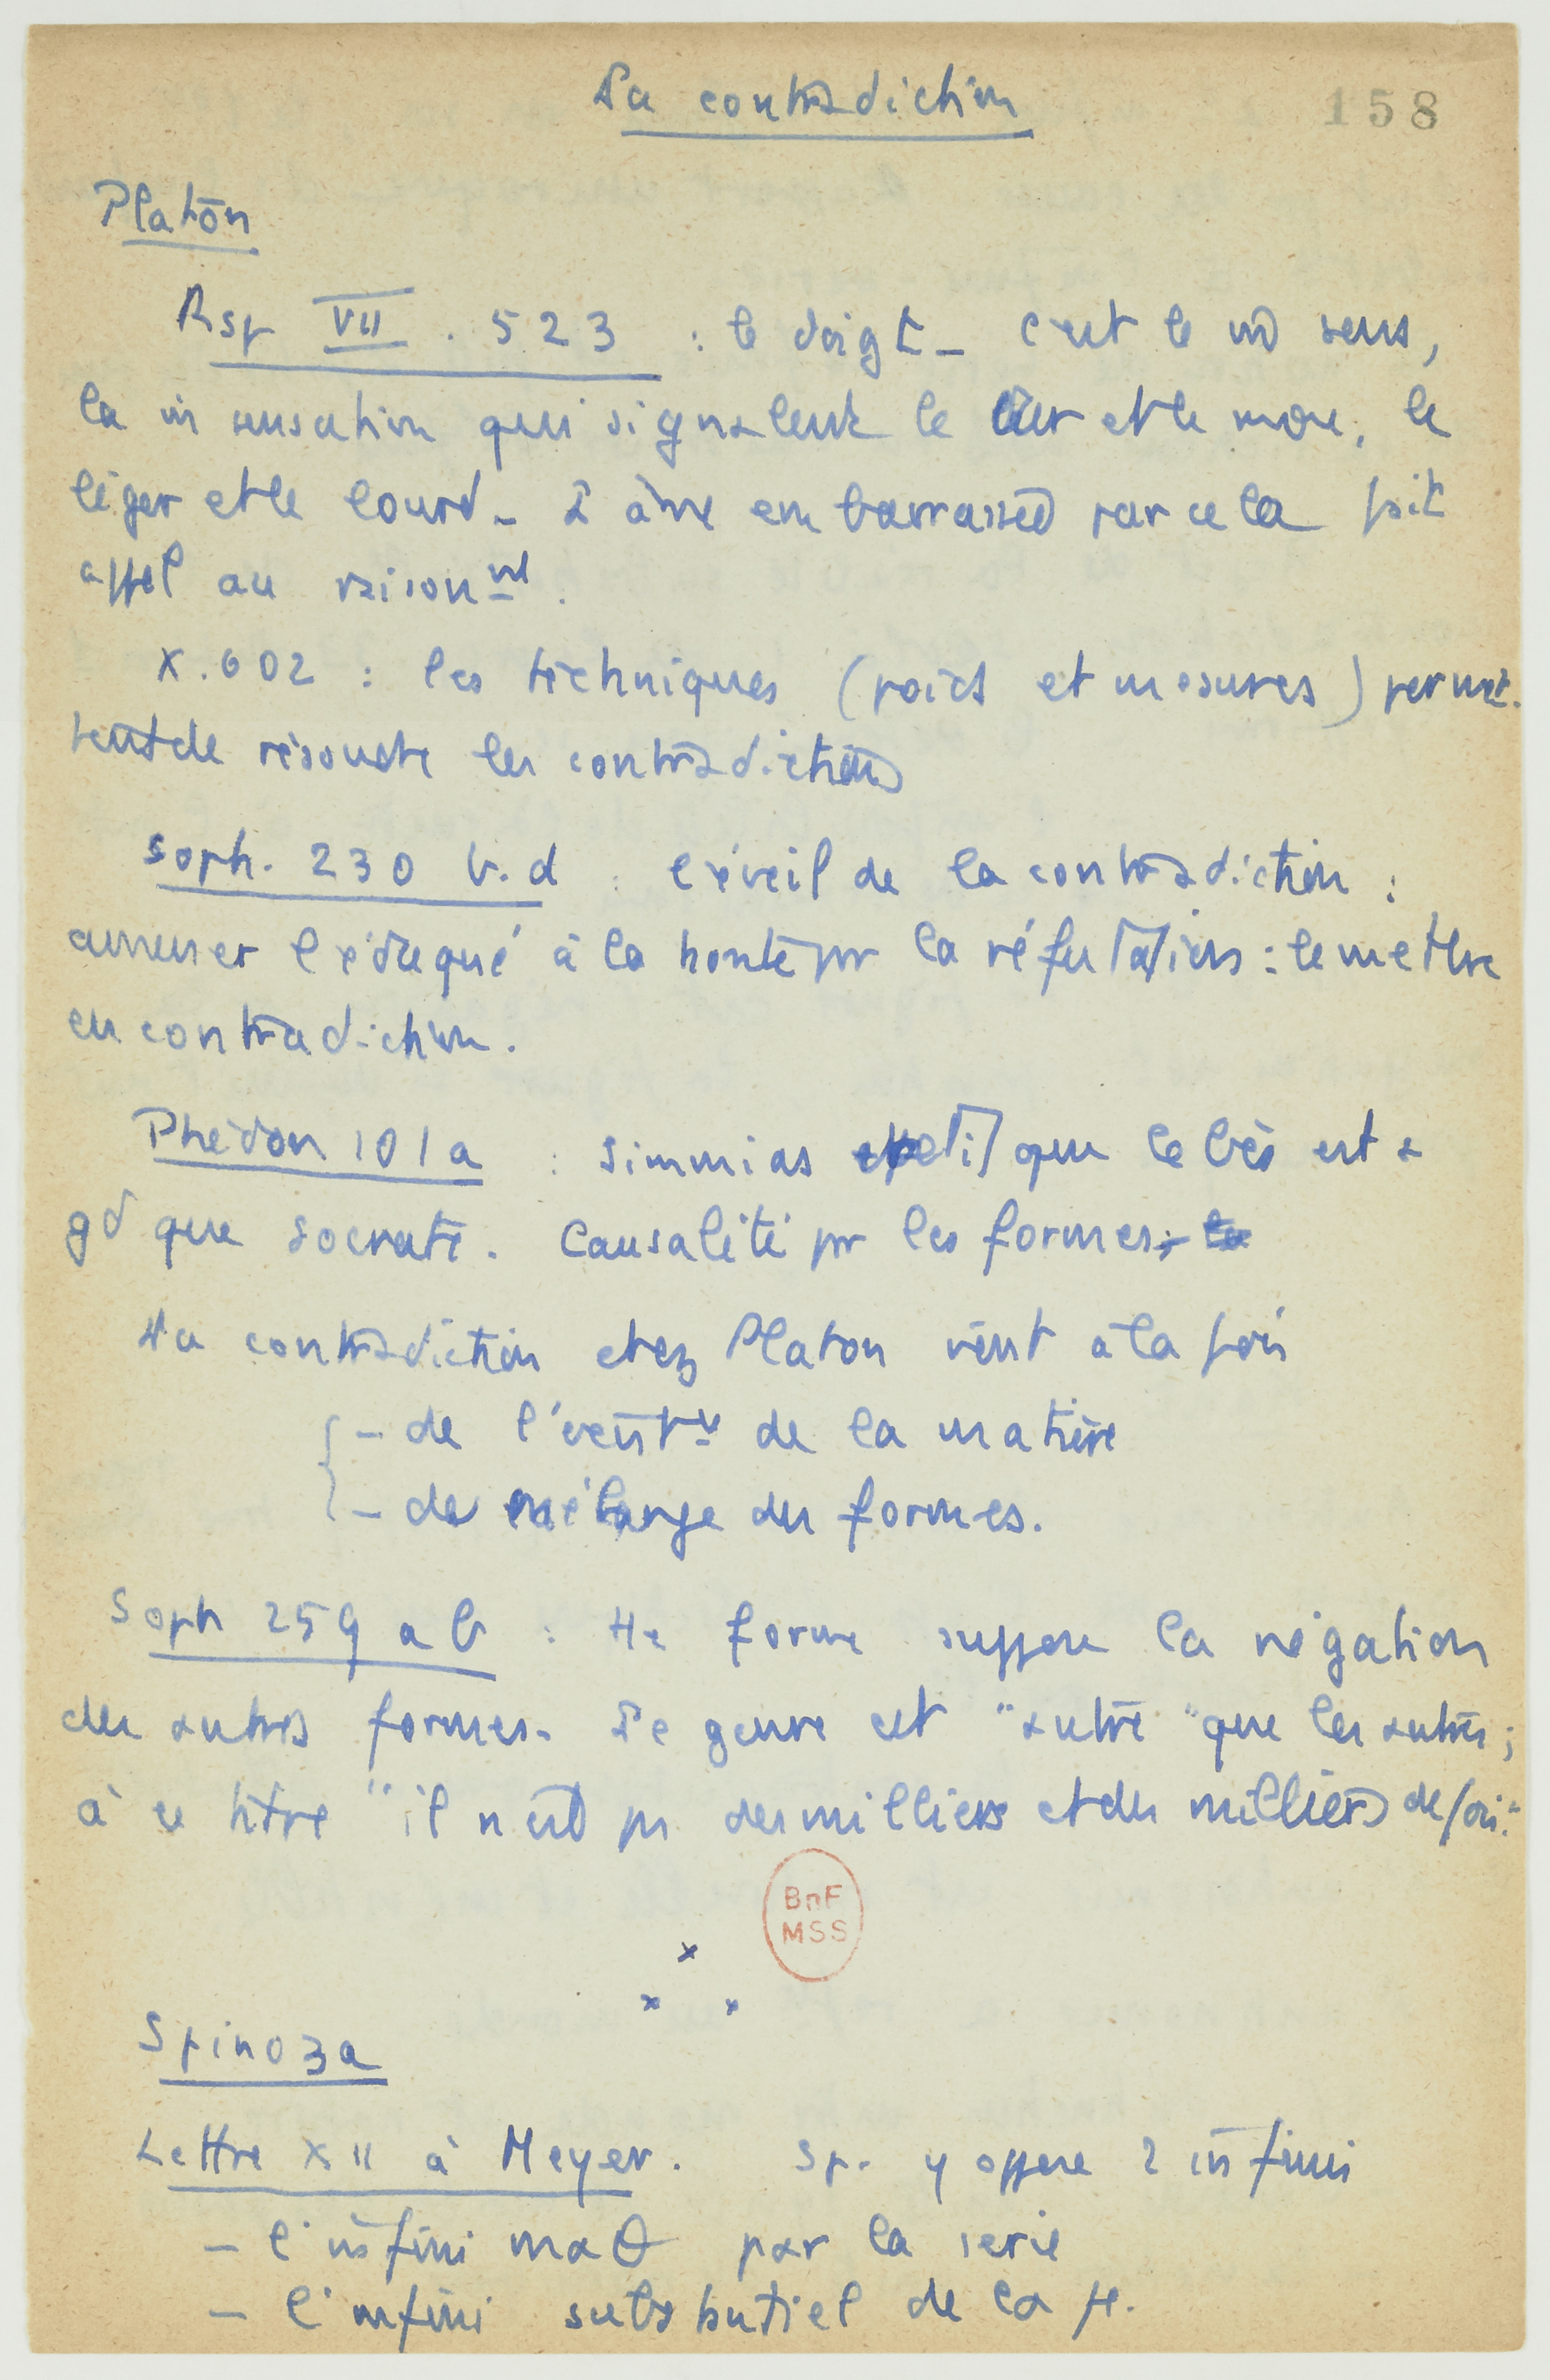 La contradiction
158
Platon
Rép VII . 523 : le doigt _ C'est le m̂ sens,
la m̂ sensation qui signalent le dur et le mou, le
léger et le lourd _ L'âme embarrassée par cela fait
appel au raisonnt.
X.602 : les techniques (poids et mesures) permet-
tent de résoudre les contradictions
Soph. 230 b.d : l'éveil de la contradiction :
amener l'éduqué à la honte par la réfutation : le mettre
en contradiction.
Phédon 101a : Simmias petit que Cébès est +
gd que Socrate. Causalité par les formes.
La contradiction chez Platon vient à la fois
- de de la matière
- de mélange des formes.
Soph 259 a b : tte forme suppose la négation
des autres formes. Le genre est "autre" que les autres ;
à ce titre "il n'est pas des milliers et des milliers de fois."
BnF
MSS
x
x x
Spinoza
Lettre XII à Meyer. Sp. y oppose 2 infinis
- l'infini maθ par la série
- l'infini substantiel de la